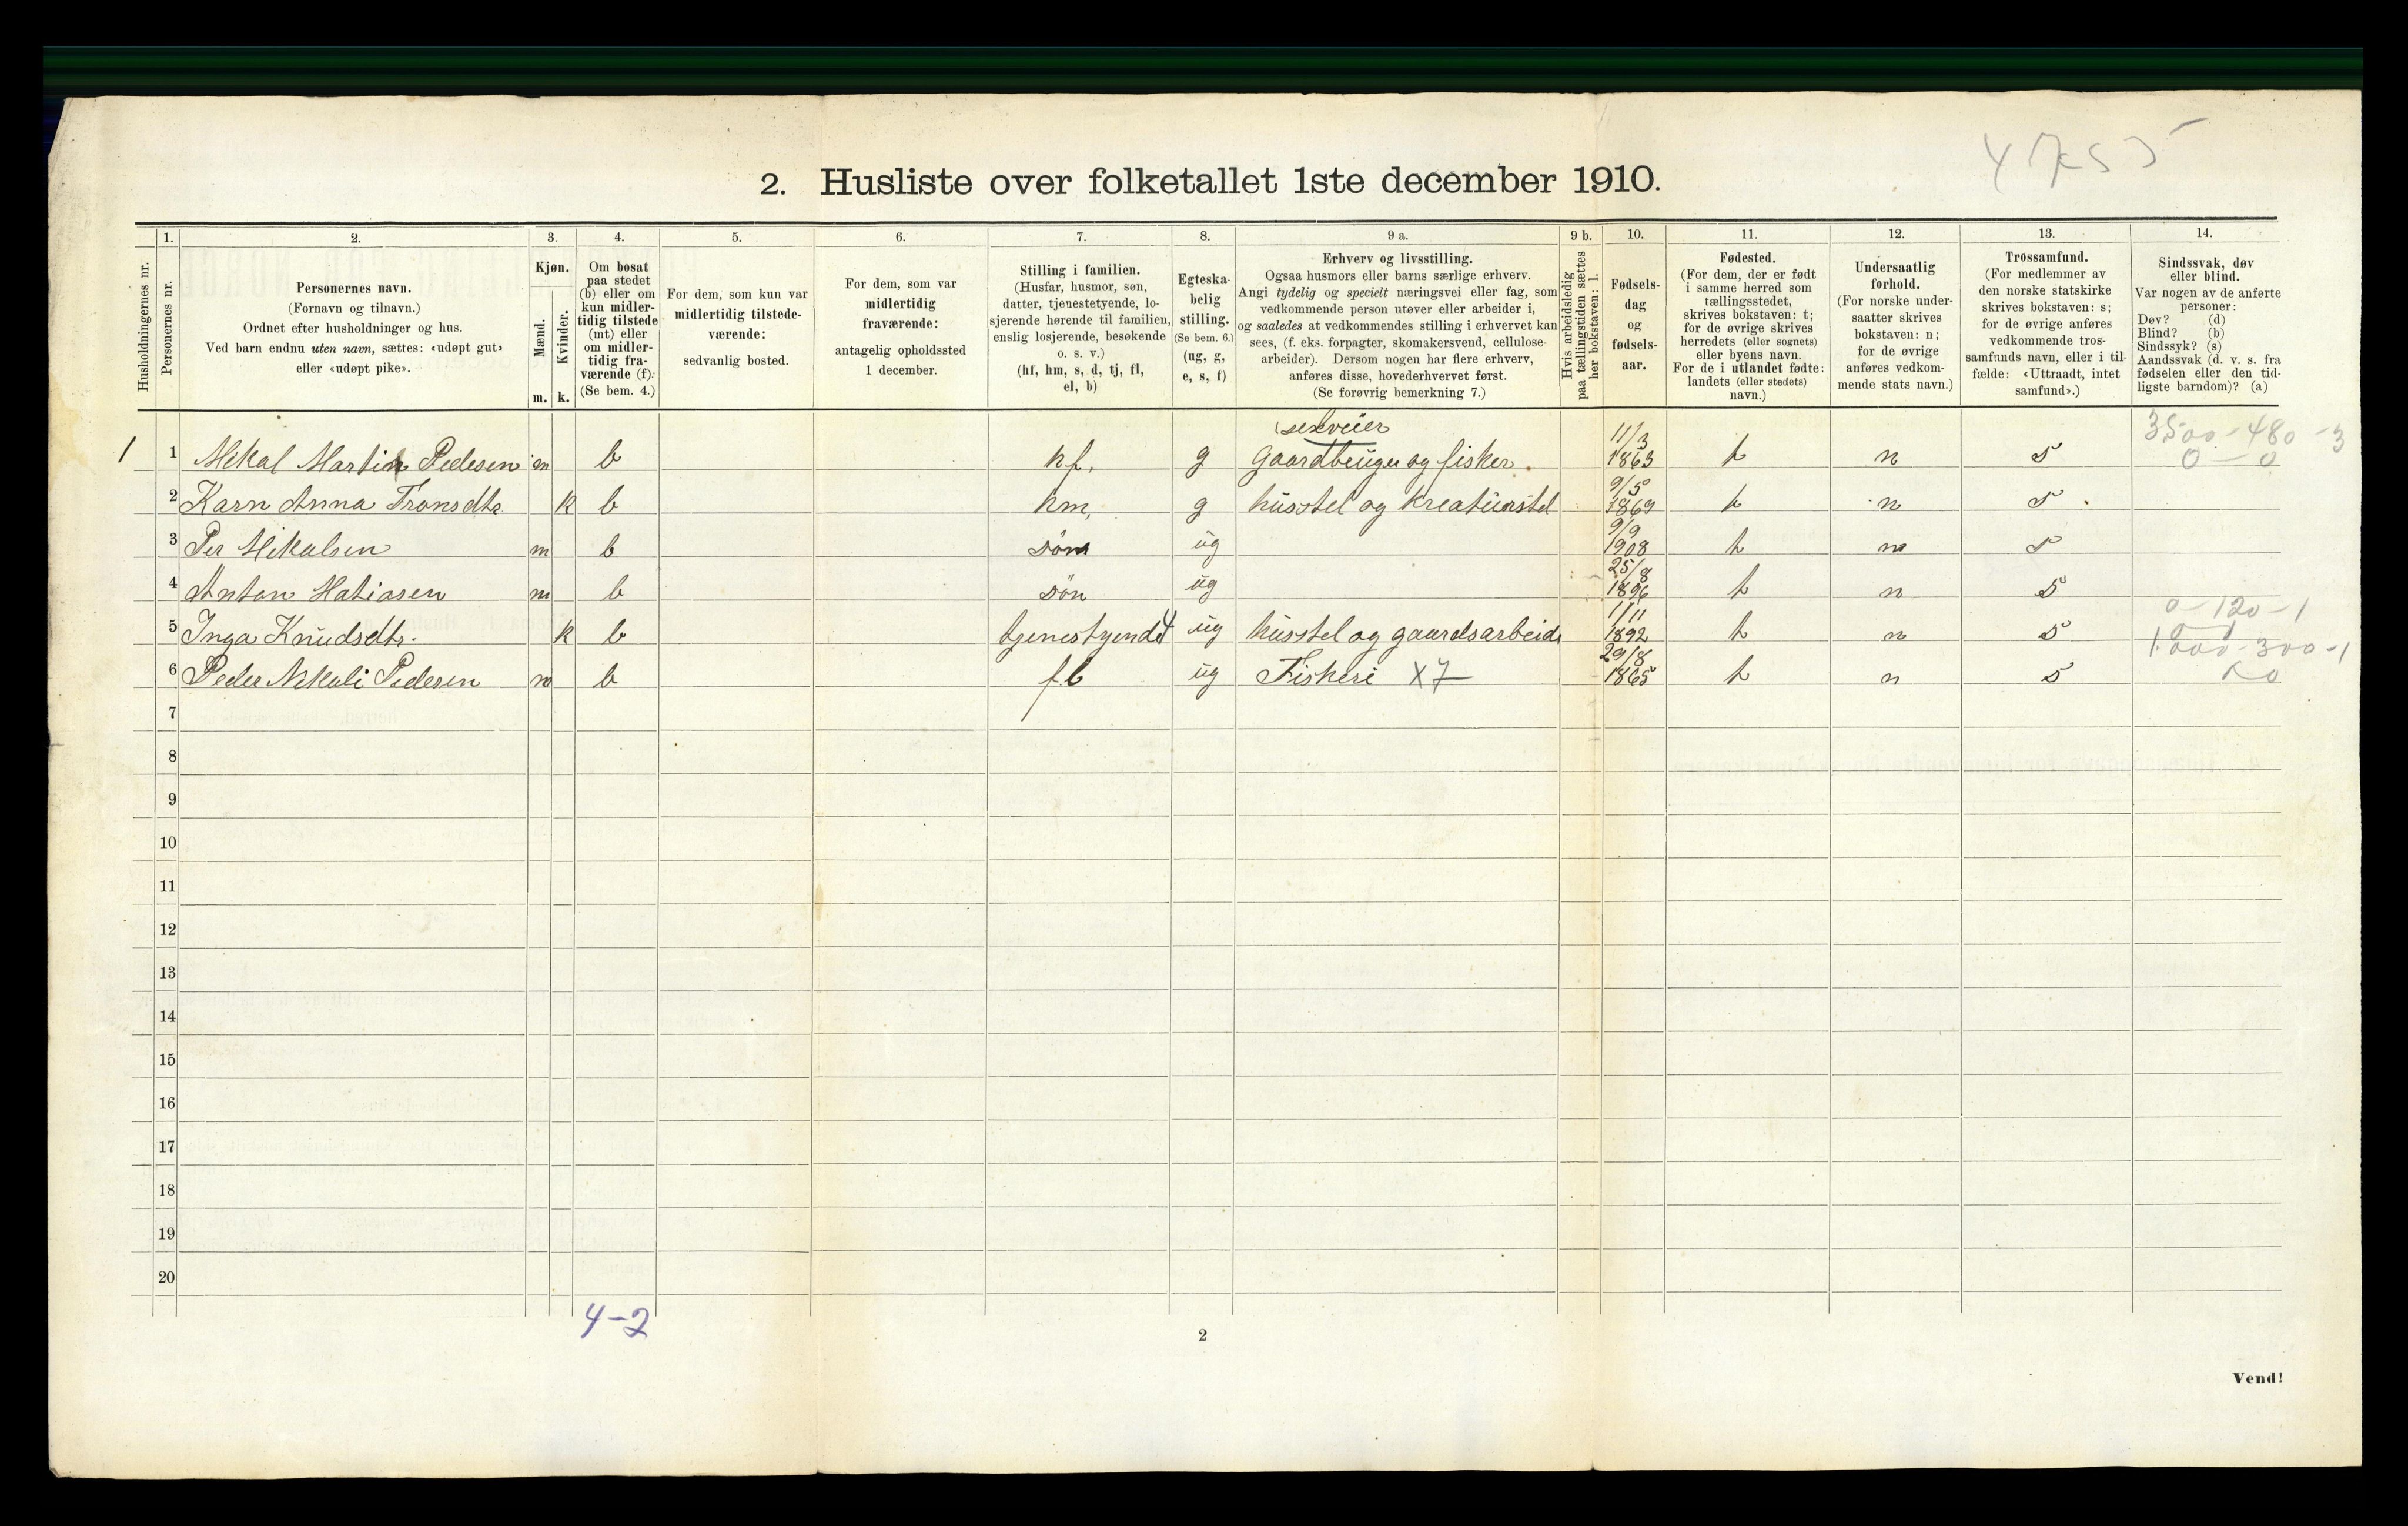 2. Husliste over folketallet 1ste december 1910.
Husholdningernes nr.
1.
Personernes nr.
2.
Personernes navn.
(Fornavn og tilnavn.)
Ordnet efter husholdninger og hus.
Ved barn endnu uten navn, sættes: «udøpt gut»
eller «udøpt pike».
3.
Kjøn.
Mænd.
Kvinder.
m. k.
4.
Om bosat
paa stedet
(b) eller om
kun midler-
tidig tilstede
(mt) eller
om midler-
tidig fra-
værende (f).
(Se bem. 4.)
5.
For dem, som kun var
midlertidig tilstede-
værende:
sedvanlig bosted.
6.
For dem, som var
midlertidig
fraværende:
antagelig opholdssted
1 december.
7.
Stilling i familien.
(Husfar, husmor, søn,
datter, tjenestetyende, lo-
sjerende hørende til familien,
enslig losjerende, besøkende
o. s. v.)
(hf, hm, s, d, tj, fl,
el, b)
8.
Egteska-
belig
stilling.
(Se bem. 6.)
(ug, g,
e, s, f)
9 a.
Erhverv og livsstilling.
Ogsaa husmors eller barns særlige erhverv.
Angi tydelig og specielt næringsvei eller fag, som
vedkommende person utøver eller arbeider i,
og saaledes at vedkommendes stilling i erhvervet kan
sees, (f. eks. forpagter, skomakersvend, cellulose-
arbeider). Dersom nogen har flere erhverv,
anføres disse, hovederhvervet først.
(Se forøvrig bemerkning 7.)
9 b.
Hvis arbeidsledig
paa tællingstiden sættes
her bokstaven: l.
10.
Fødsels-
dag
og
fødsels-
aar.
11.
Fødested.
(For dem, der er født
i samme herred som
tællingsstedet,
skrives bokstaven: t;
for de øvrige skrives
herredets (eller sognets)
eller byens navn.
For de i utlandet fødte:
landets (eller stedets)
navn.)
12.
Undersaatlig
forhold.
(For norske under-
saatter skrives
bokstaven: n;
for de øvrige
anføres vedkom-
mende stats navn.)
13.
Trossamfund.
(For medlemmer av
den norske statskirke
skrives bokstaven: s;
for de øvrige anføres
vedkommende tros-
samfunds navn, eller i til-
fælde: «Uttraadt, intet
samfund».)
14.
Sindssvak, døv
eller blind.
Var nogen av de anførte
personer:
Døv? (d)
Blind? (b)
Sindssyk? (s)
Aandssvak (d. v. s. fra
fødselen eller den tid-
ligste barndom)? (a)
selveier 11/3 3500-480-3
1 1 Mikal Martin Pedesen m b hf, g Gaardbruger og fisker. 1863 t n s 0-0
2 Karn Anna Tronsdtr k b hm, g husstel og kreaturstel 9/5 1869 t n s
3 Per Mikalsen m b søn ug 9/9 1908 t n s
4 Anton Matiasen m b søn ug 25/8 1896 t n s
0-120-1
5 Inga Knudsdtr. k b tjenestyende ug husstel og gaardsarbeide 1/11 1892 t n s
1000-300-1
6 Peder Nikoli Pedersen m b fl ug Fiskeri X7 29/8 1865 t n s
7
8
9
10
11
12
13
14
15
16
17
18
19
20
4-2
2
Vend!